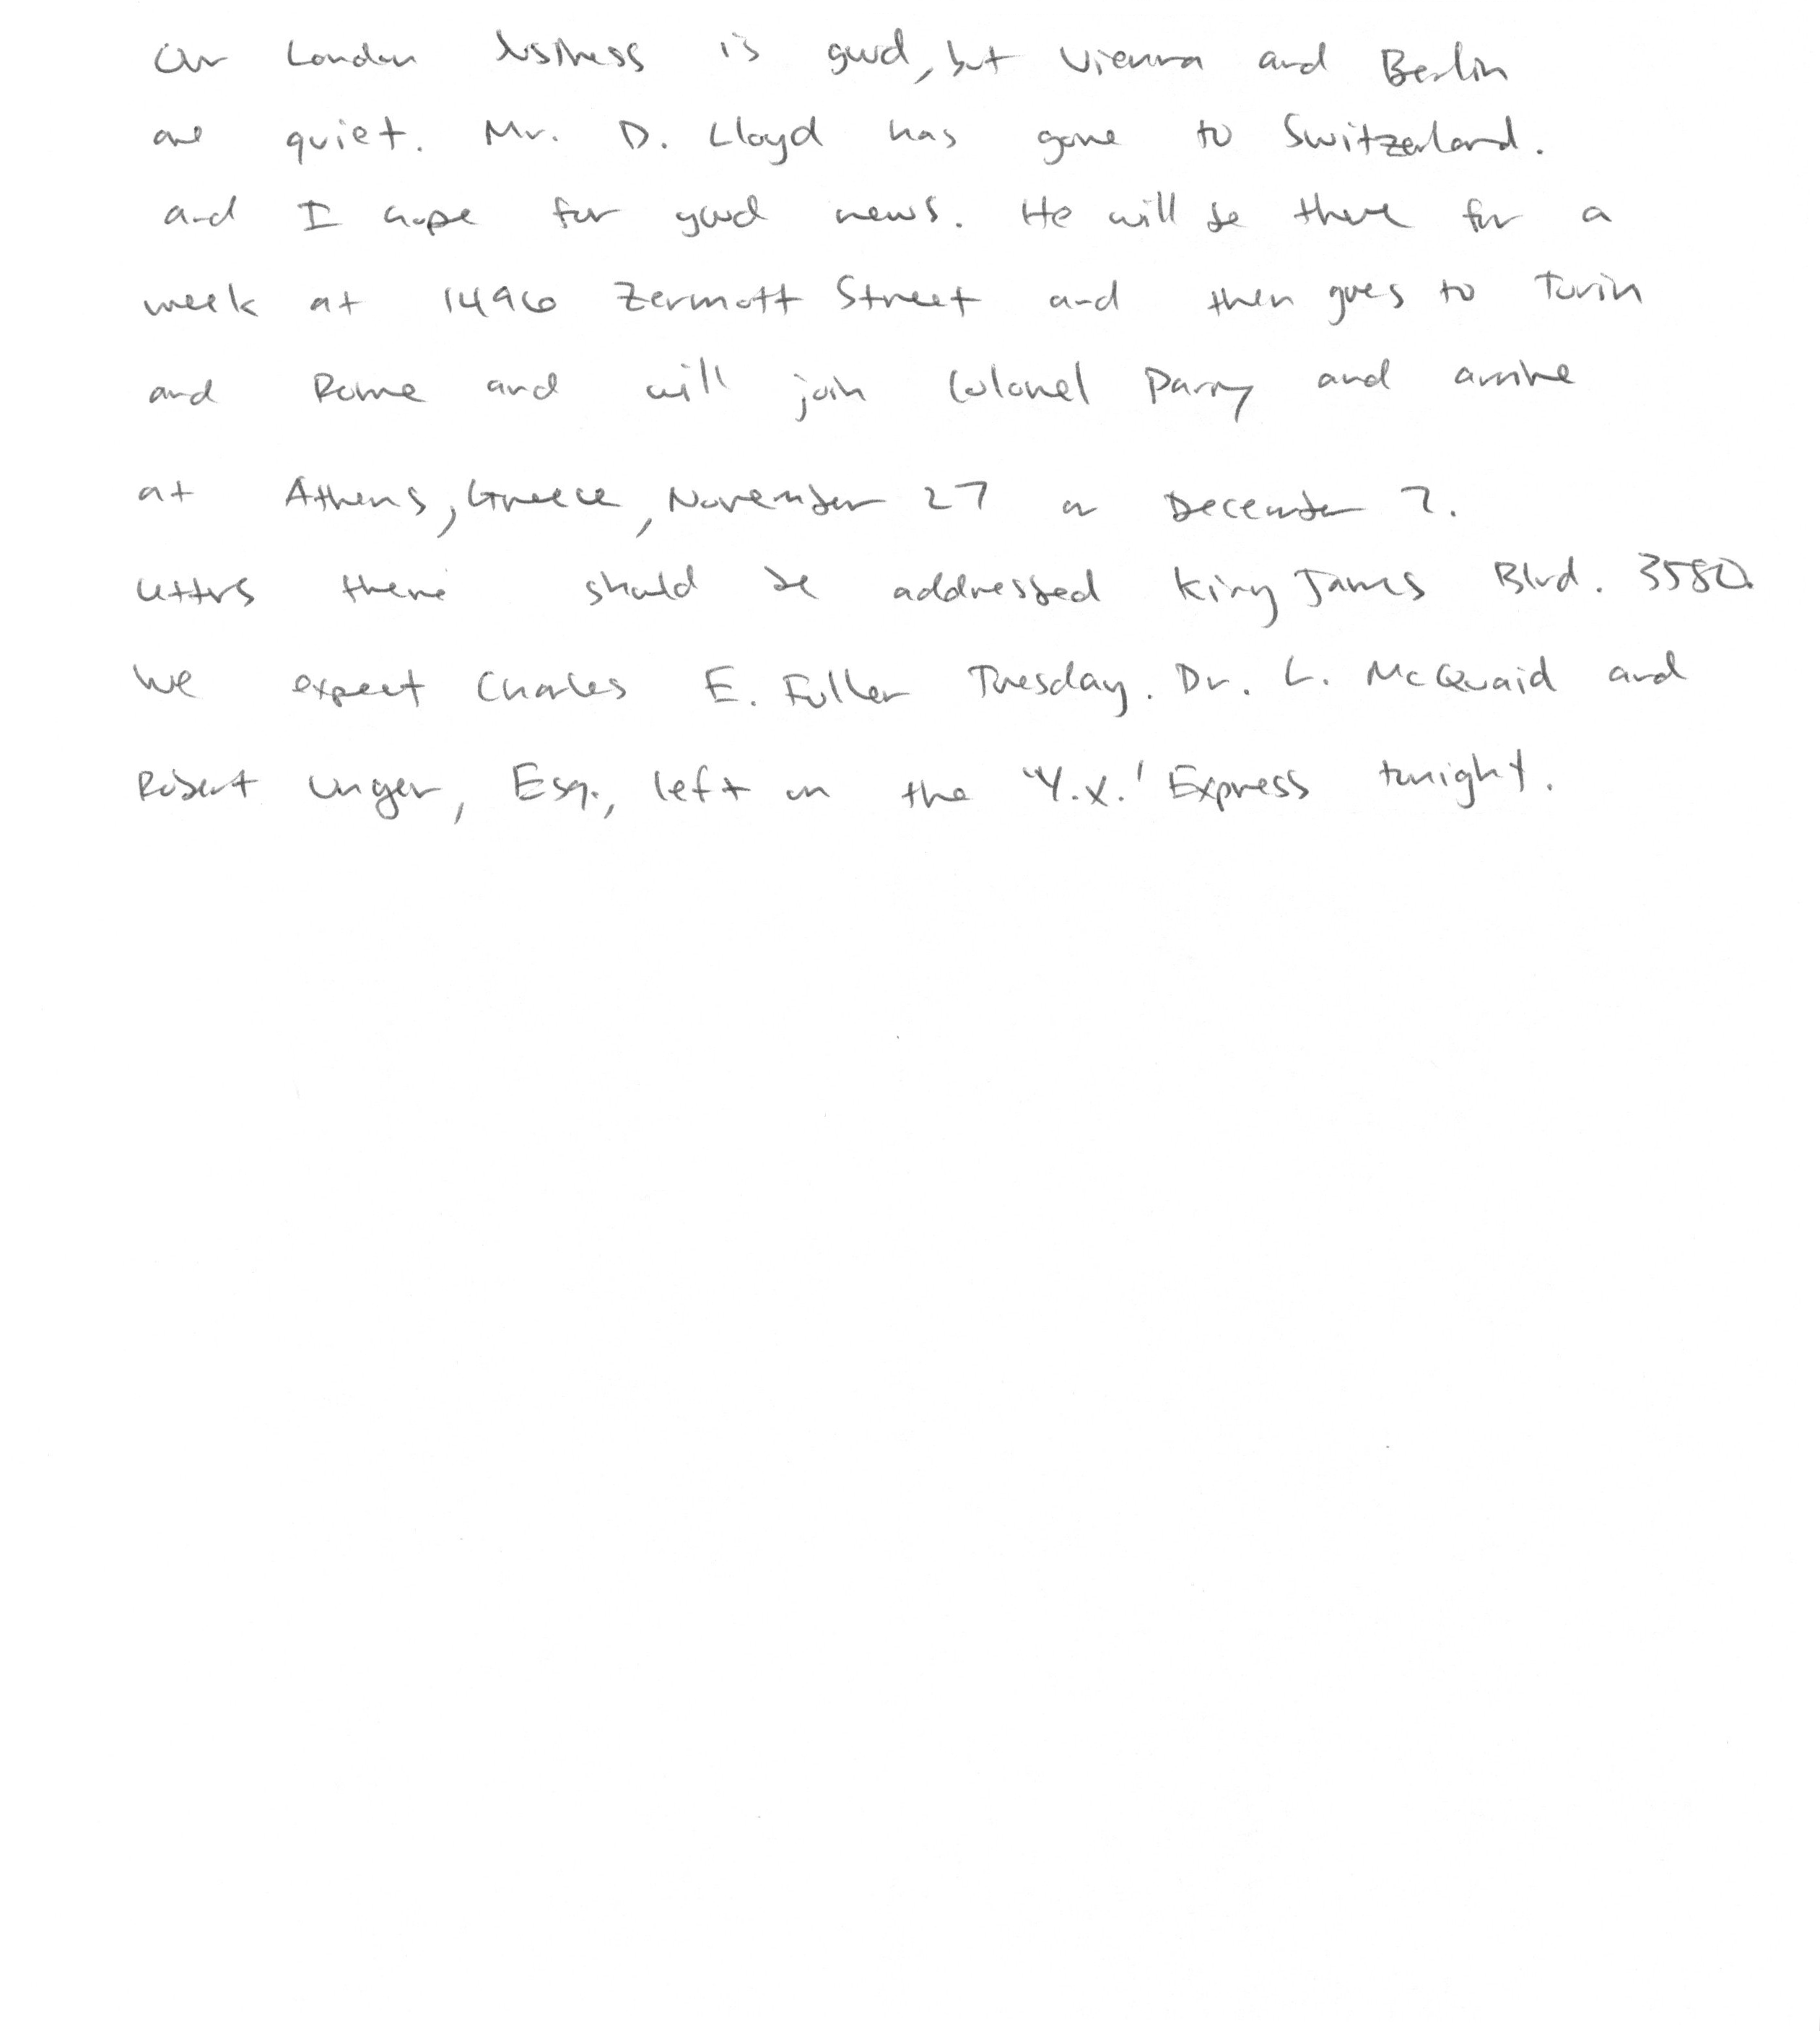 Our London business is good, but Vienna and Berlin
are quiet. Mr. D. Lloyd has gone to Switzerland.
and I hope for good news. He will be there for a
week at 1496 Zermott Street and then goes to Turin
and Rome and will join Colonel Parry and arrive
at Athens, Greece, November 27 or December 2.
Letters there should be addressed King James Blvd. 3580.
We expect Charles E. Fuller Tuesday. Dr. L. McQuaid and
Robert Unger, Esq., left on the 'Y.X.' Express tonight.